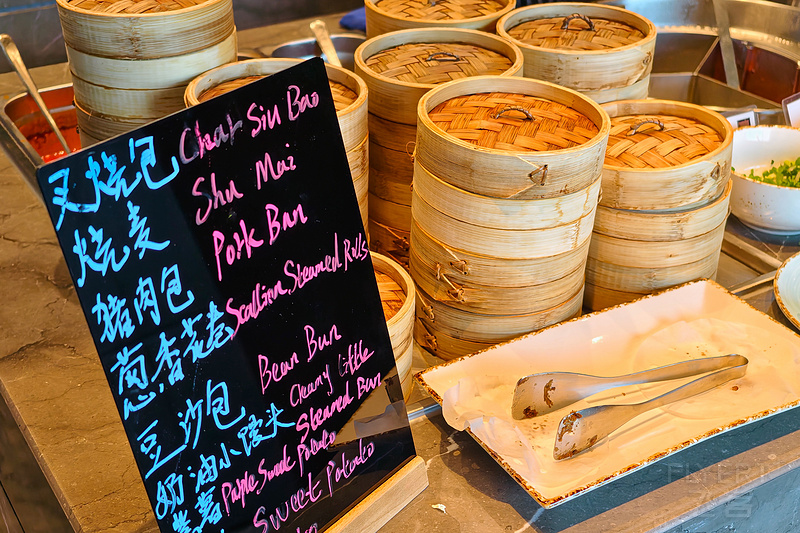 叉烧包 Char Siu Bao
烧麦 Shu Mai
猪肉包 Pork Ban
葱香花卷 Scallion Steamed Rolls
豆沙包 Bean Bun
奶油小馒头 Creamy Little Steamed Bun
紫薯 Purple Sweet Potato
Sweet Potato
FLYERT